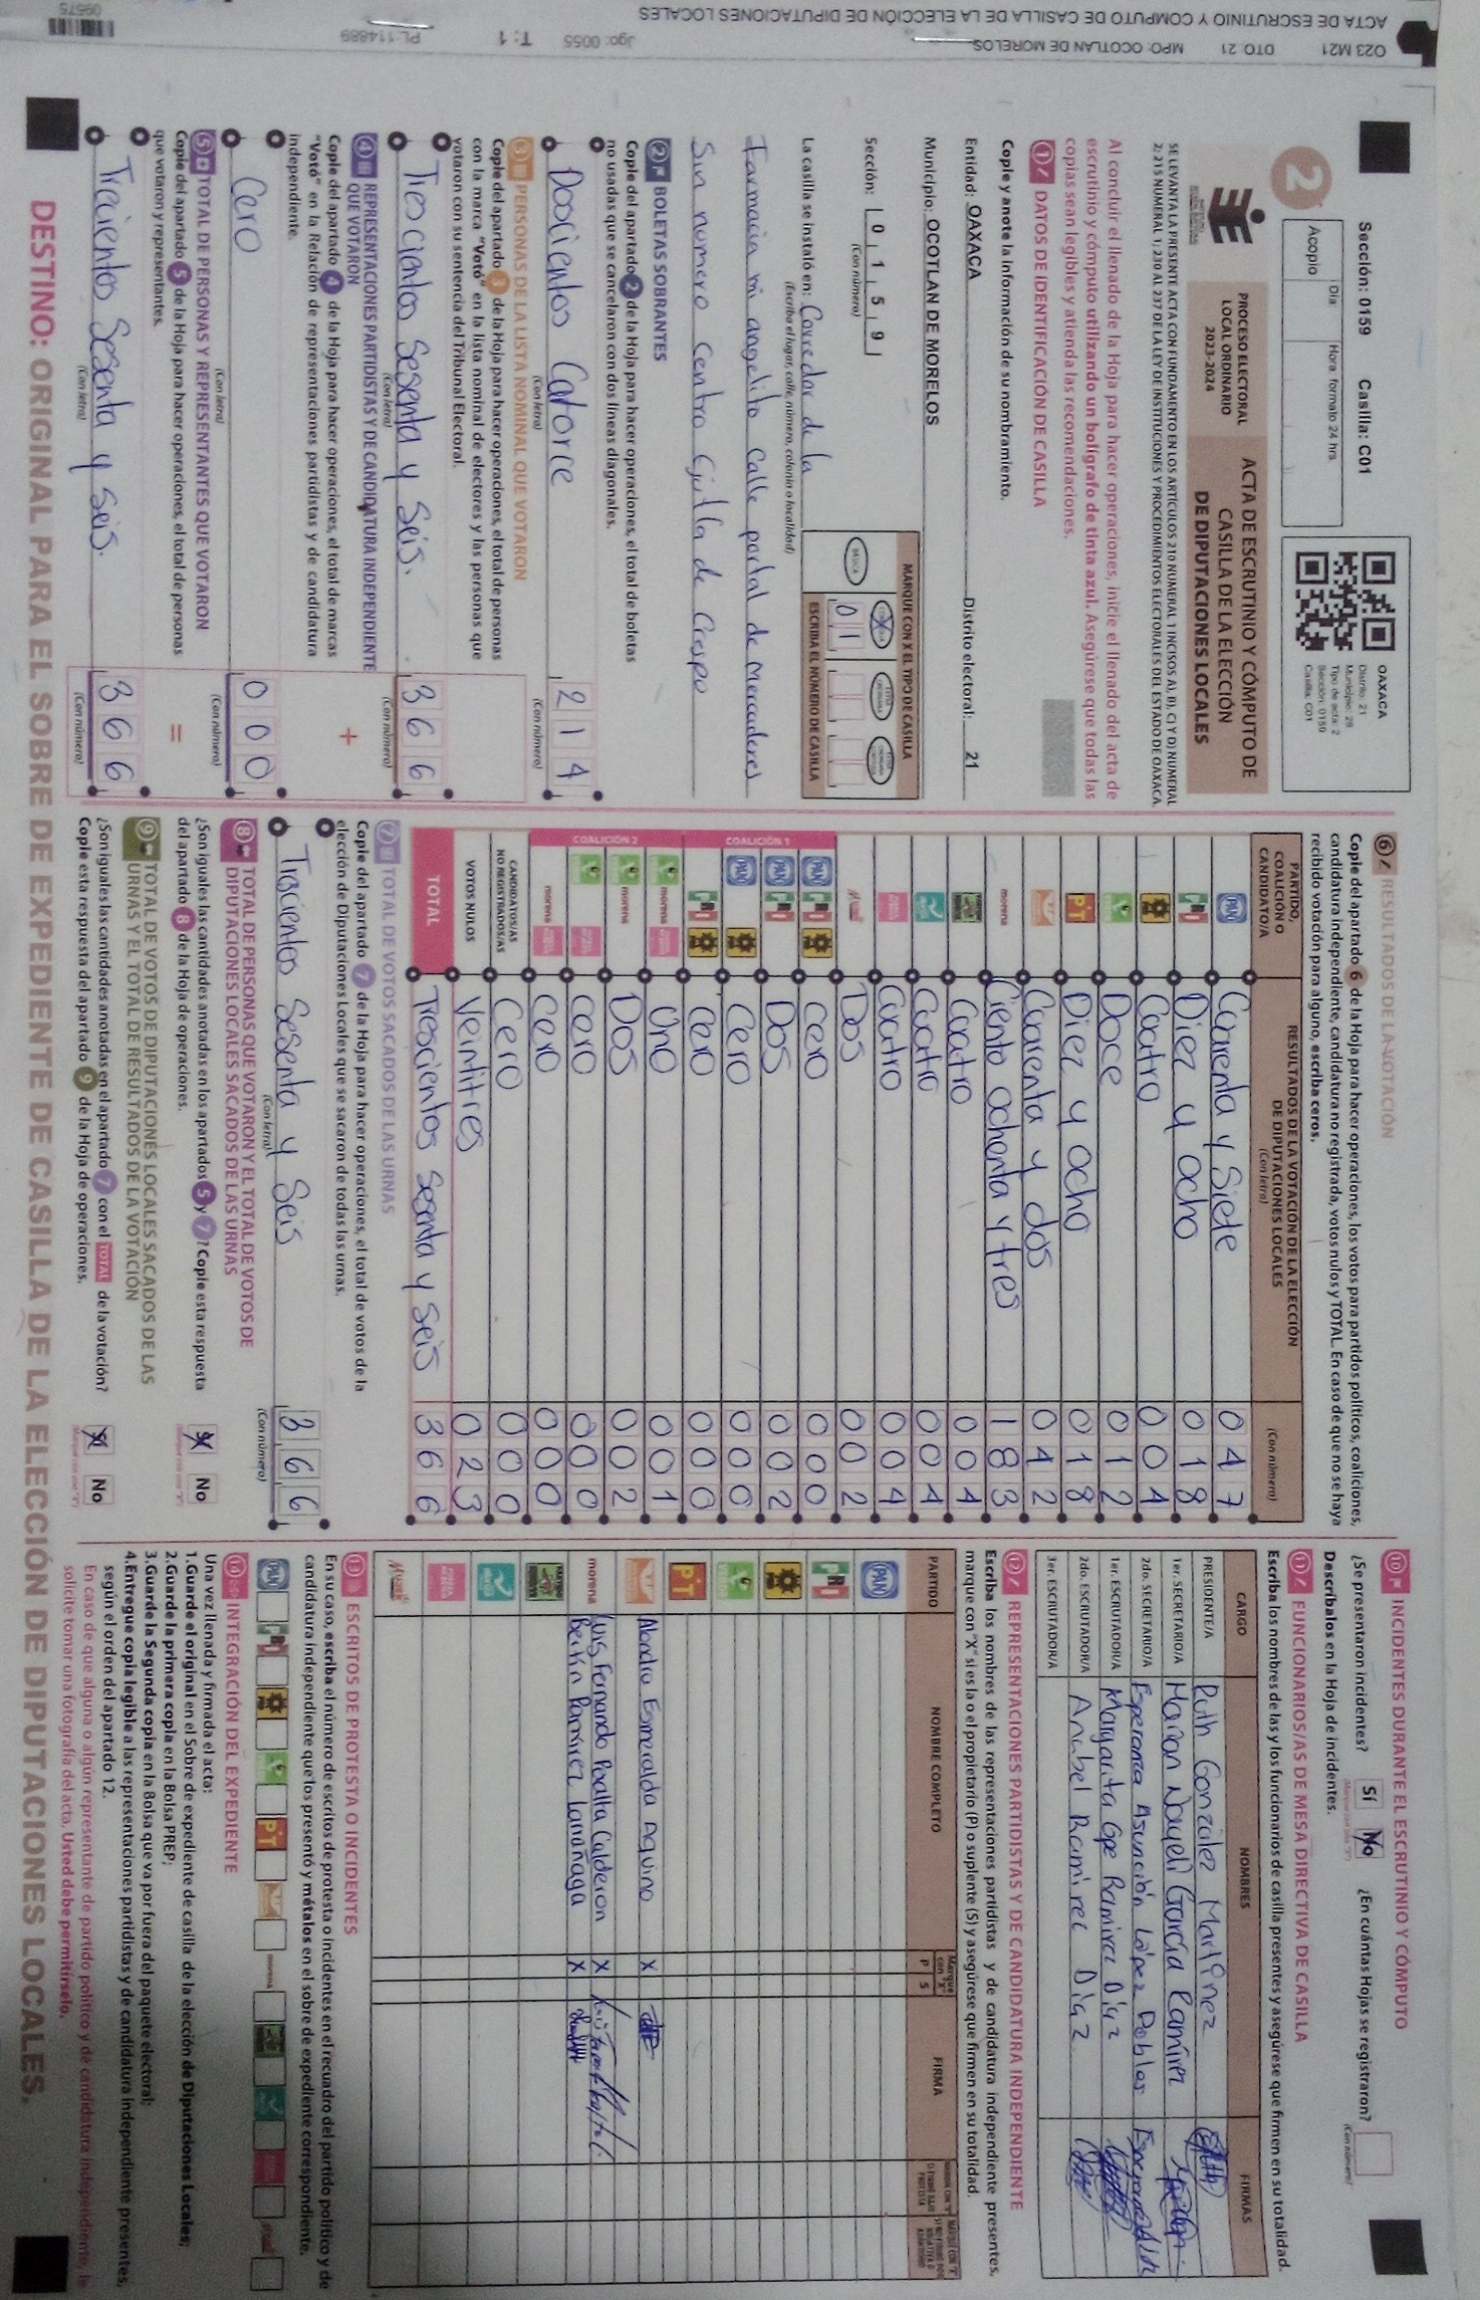 023 M21 DTO: 21 MPO: OCOTLAN DE MORELOS Jgo: 0055 T: 1 PL:114889 09575
ACTA DE ESCRUTINIO Y COMPUTO DE CASILLA DE LA ELECCIÓN DE DIPUTACIONES LOCALES
Sección: 0159 Casilla: C01
2
Día Hora formato 24 hrs
Acopio
OAXACA
Distrito: 21
Tipo de acta: 2
Sección: 0159
Casilla: C01
PROCESO ELECTORAL
LOCAL ORDINARIO
2023-2024
ACTA DE ESCRUTINIO Y CÓMPUTO DE
CASILLA DE LA ELECCIÓN
DE DIPUTACIONES LOCALES
SE LEVANTA LA PRESENTE ACTA CON FUNDAMENTO EN LOS ARTÍCULOS 210 NUMERAL 1 INCISOS A), B), C) Y D) NUMERAL
2; 215 NUMERAL 1; 230 AL 237 DE LA LEY DE INSTITUCIONES Y PROCEDIMIENTOS ELECTORALES DEL ESTADO DE OAXACA.
Al concluir el llenado de la Hoja para hacer operaciones, inicie el llenado del acta de
escrutinio y cómputo utilizando un bolígrafo de tinta azul. Asegúrese que todas las
copias sean legibles y atienda las recomendaciones.
1 DATOS DE IDENTIFICACIÓN DE CASILLA
Copie y anote la información de su nombramiento.
Entidad: OAXACA Distrito electoral: 21
Municipio: OCOTLAN DE MORELOS
Sección: 0 1 5 9
(Con número)
MARQUE CON X EL TIPO DE CASILLA
BÁSICA
ESCRIBA EL NÚMERO DE CASILLA
0 1
La casilla se instaló en: Corredor de la
(Escriba el lugar, calle, número, colonia o localidad)
Farmacia mi angelito calle portal de mercaderes
Sin numero Centro Cjutla de Crespo
2 BOLETAS SOBRANTES
Copie del apartado 2 de la Hoja para hacer operaciones, el total de boletas
no usadas que se cancelaron con dos líneas diagonales.
Doscientos Catorce 2 1 4
(Con letra) (Con número)
3 PERSONAS DE LA LISTA NOMINAL QUE VOTARON
Copie del apartado 3 de la Hoja para hacer operaciones, el total de personas
con la marca "Votó" en la lista nominal de electores y las personas que
votaron con su sentencia del Tribunal Electoral.
Trescientos sesenta y Seis. 3 6 6
(Con letra) (Con número)
4 REPRESENTACIONES PARTIDISTAS Y DE CANDIDATURA INDEPENDIENTE
QUE VOTARON
Copie del apartado 4 de la Hoja para hacer operaciones, el total de marcas
"Votó" en la Relación de representaciones partidistas y de candidatura
independiente.
+
Cero 0 0 0
(Con letra) (Con número)
5 TOTAL DE PERSONAS Y REPRESENTANTES QUE VOTARON
Copie del apartado 5 de la Hoja para hacer operaciones, el total de personas
que votaron y representantes.
=
Trecientos Sesenta y Seis. 3 6 6
(Con letra) (Con número)
6 RESULTADOS DE LA VOTACIÓN
Copie del apartado 6 de la Hoja para hacer operaciones, los votos para partidos políticos, coaliciones,
candidatura independiente, candidatura no registrada, votos nulos y TOTAL. En caso de que no se haya
recibido votación para alguno, escriba ceros.
PARTIDO, COALICIÓN O CANDIDATO/A
RESULTADOS DE LA VOTACIÓN DE LA ELECCIÓN DE DIPUTACIONES LOCALES
(Con letra) (Con número)
PAN Cuarenta y Siete 0 4 7
PRI Diez y ocho 0 1 8
Cuatro 0 0 4
Doce 0 1 2
PT Diez y ocho 0 1 8
Cuarenta y dos 0 4 2
morena Ciento ochenta y tres 1 8 3
Cuatro 0 0 4
Cuatro 0 0 4
Cuatro 0 0 4
Dos 0 0 2
COALICIÓN 1
PAN PRI cero 0 0 0
PAN PRI Dos 0 0 2
PAN Cero 0 0 0
PRI cero 0 0 0
COALICIÓN 2
morena Uno 0 0 1
morena Dos 0 0 2
cero 0 0 0
morena cero 0 0 0
CANDIDATOS/AS NO REGISTRADOS/AS Cero 0 0 0
VOTOS NULOS Veintitres 0 2 3
TOTAL Trescientos Sesenta y Seis 3 6 6
7 TOTAL DE VOTOS SACADOS DE LAS URNAS
Copie del apartado 7 de la Hoja para hacer operaciones, el total de votos de la
elección de Diputaciones Locales que se sacaron de todas las urnas.
Trecientos Sesenta y Seis 3 6 6
(Con letra) (Con número)
8 TOTAL DE PERSONAS QUE VOTARON Y EL TOTAL DE VOTOS DE
DIPUTACIONES LOCALES SACADOS DE LAS URNAS
¿Son iguales las cantidades anotadas en los apartados 5 y 7? Copie esta respuesta
del apartado 8 de la Hoja de operaciones.
Sí No
9 TOTAL DE VOTOS DE DIPUTACIONES LOCALES SACADOS DE LAS
URNAS Y EL TOTAL DE RESULTADOS DE LA VOTACIÓN
¿Son iguales las cantidades anotadas en el apartado 7 con el TOTAL de la votación?
Copie esta respuesta del apartado 9 de la Hoja de operaciones.
Sí No
10 INCIDENTES DURANTE EL ESCRUTINIO Y CÓMPUTO
¿Se presentaron incidentes? Sí No ¿En cuántas Hojas se registraron?
(Con número)
Descríbalos en la Hoja de incidentes.
11 FUNCIONARIOS/AS DE MESA DIRECTIVA DE CASILLA
Escriba los nombres de las y los funcionarios de casilla presentes y asegúrese que firmen en su totalidad.
CARGO NOMBRES FIRMAS
PRESIDENTE/A Ruth González Martínez
1er. SECRETARIO/A Marion Nayeli García Ramírez
2do. SECRETARIO/A Esperanza Asunción López Robles
1er. ESCRUTADOR/A Margarita Gpe Ramirez Díaz
2do. ESCRUTADOR/A Anabel Ramirez Díaz
3er. ESCRUTADOR/A
12 REPRESENTACIONES PARTIDISTAS Y DE CANDIDATURA INDEPENDIENTE
Escriba los nombres de las representaciones partidistas y de candidatura independiente presentes,
marque con "X" si es la o el propietario (P) o suplente (S) y asegúrese que firmen en su totalidad.
PARTIDO NOMBRE COMPLETO Marque con "X" P S FIRMA
PAN
PRI
PT
Alondra Esmeralda Aquino X
morena Luis Fernando Peralta Calderon X
Ramirez X
13 ESCRITOS DE PROTESTA O INCIDENTES
En su caso, escriba el número de escritos de protesta o incidentes en el recuadro del partido político y de
candidatura independiente que los presentó y métalos en el sobre de expediente correspondiente.
PAN PRI PT morena
INTEGRACIÓN DEL EXPEDIENTE
Una vez llenada y firmada el acta:
1.Guarde el original en el Sobre de expediente de casilla de la elección de Diputaciones Locales;
2.Guarde la primera copia en la Bolsa PREP;
3.Guarde la Segunda copia en la Bolsa que va por fuera del paquete electoral;
4.Entregue copia legible a las representaciones partidistas y de candidatura independiente presentes,
según el orden del apartado 12.
En caso de que alguna o algún representante de partido político y de candidatura independiente, le
solicite tomar una fotografía del acta, Usted debe permitírselo.
DESTINO: ORIGINAL PARA EL SOBRE DE EXPEDIENTE DE CASILLA DE LA ELECCIÓN DE DIPUTACIONES LOCALES.